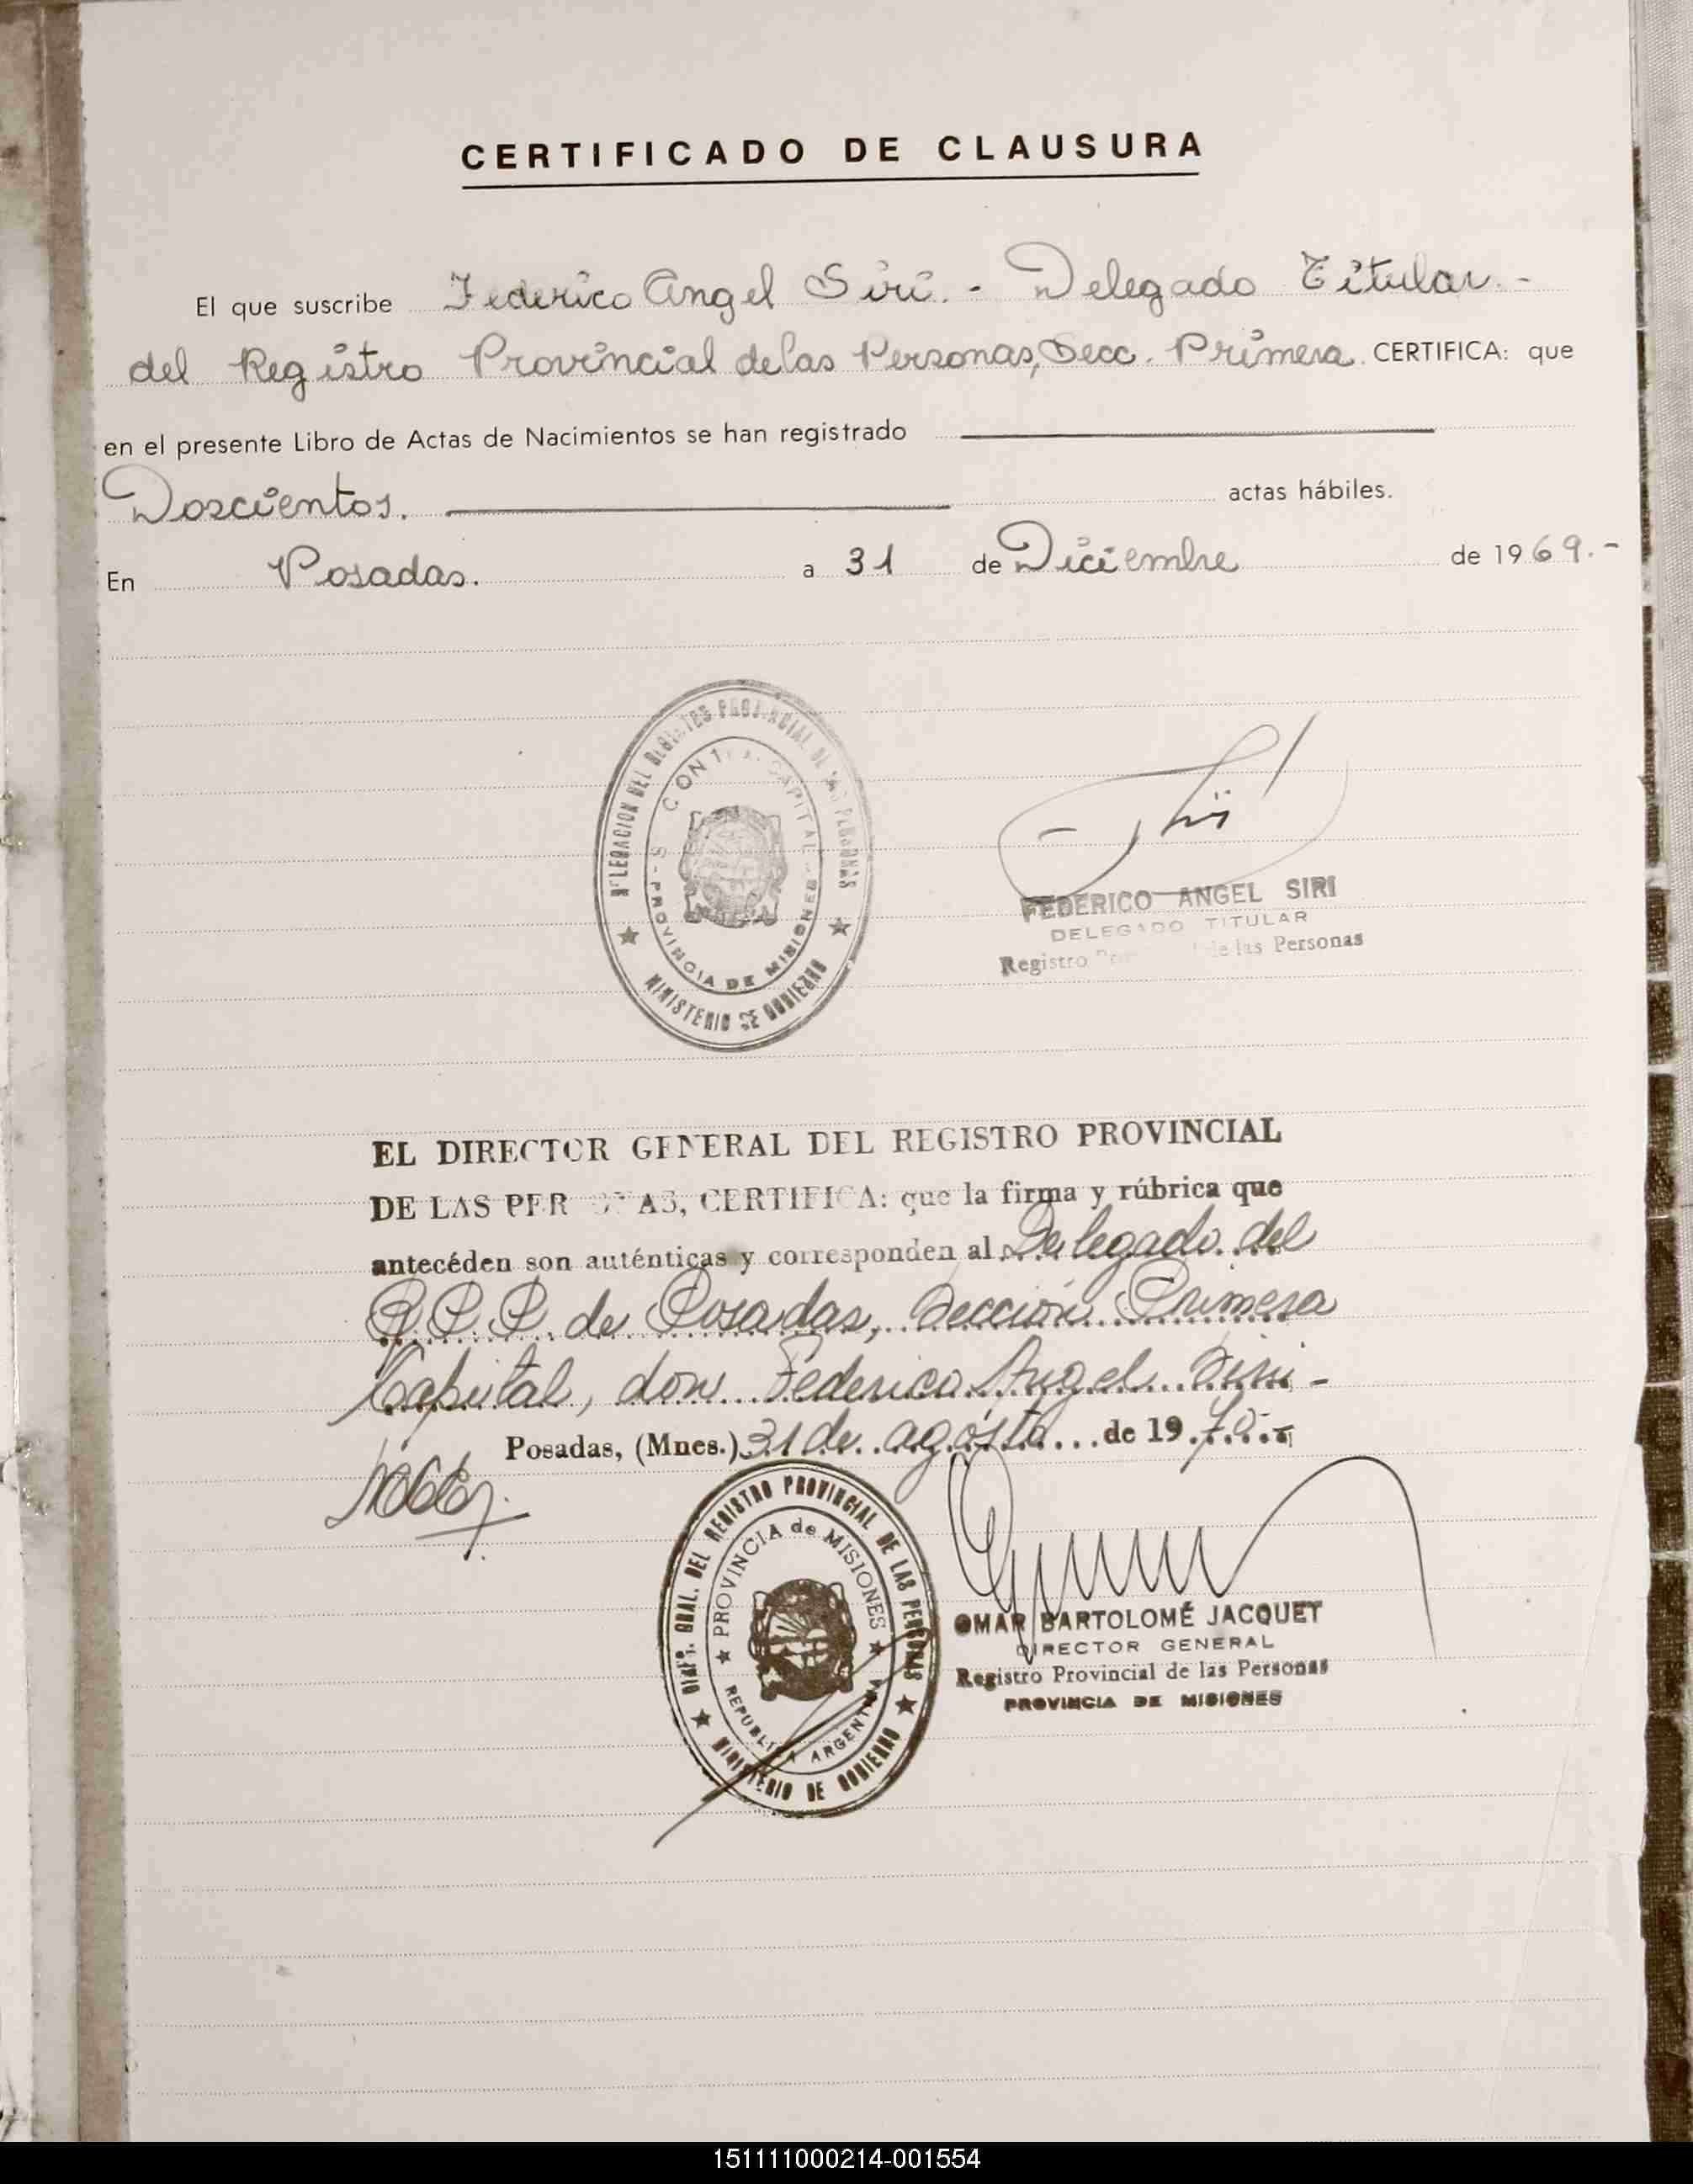 CERTIFICADO DE CLAUSURA
El que suscribe Federico Angel Siri. - Delegado Titular. -
del Registro Provincial de las Personas, Secc. Primera. CERTIFICA: que
en el presente Libro de Actas de Nacimientos se han registrado
Doscientos. actas hábiles.
En Posadas. a 31 de Diciembre de 1969.-
DELEGACION DEL REGISTRO PROVINCIAL DE LAS PERSONAS
CAPITAL
PROVINCIA DE MISIONES
MINISTERIO DE GOBIERNO
FEDERICO ANGEL SIRI
DELEGADO TITULAR
Registro de las Personas
EL DIRECTOR GENERAL DEL REGISTRO PROVINCIAL
DE LAS PERSONAS, CERTIFICA: que la firma y rúbrica que
antecéden son auténticas y corresponden al Delegado del
R.P.P. de Posadas, Sección Primera
Capital, don Federico Angel Siri -
Posadas, (Mnes.) 31 de agosto de 1970.-
DIREC. GRAL. DEL REGISTRO PROVINCIAL DE LAS PERSONAS
PROVINCIA de MISIONES
REPUBLICA ARGENTINA
MINISTERIO DE GOBIERNO
OMAR BARTOLOMÉ JACQUET
DIRECTOR GENERAL
Registro Provincial de las Personas
PROVINCIA DE MISIONES
151111000214-001554